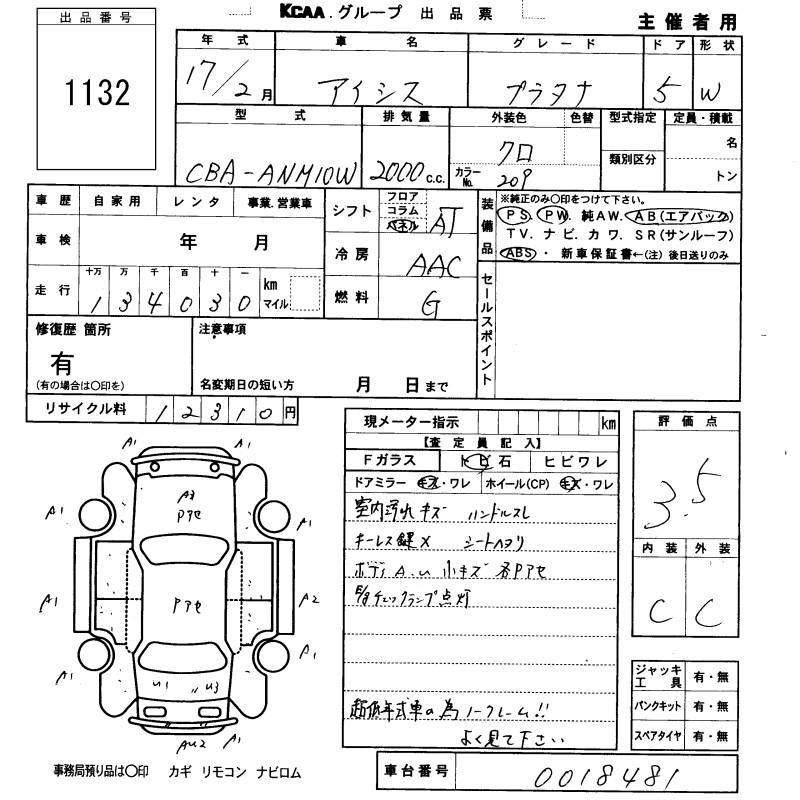 出品番号
1132
KCAA.グループ 出品票
主催者用
年式 車名 グレード ドア 形状
17/2月 アイシス プラタナ 5 W
型式 排気量 外装色 色替 型式指定 定員・積載
CBA-ANM10W 2000c.c. クロ 名
カラーNo. 209 類別区分 トン
車歴 自家用 レンタ 事業.営業車
車検 年 月
走行 十万 万 千 百 十 一 km マイル
134030
シフト フロア コラム パネル AT
冷房 AAC
燃料 G
装備品
※純正のみ○印をつけて下さい。
PS. PW. 純AW. AB(エアバック)
TV. ナビ. カワ. SR(サンルーフ)
ABS ・ 新車保証書←(注) 後日送りのみ
セールスポイント
修復歴 箇所
有
(有の場合は○印を)
注意事項
名変期日の短い方 月 日まで
リサイクル料 12310円
現メーター指示 km
【査定員記入】
Fガラス トビ石 ヒビワレ
ドアミラー キズ・ワレ ホイール(CP) キズ・ワレ
室内汚れキズ ハンドルスレ
キーレス鍵× シートヘタリ
ボディA.u 小キズ 各Pアセ
チェックランプ点灯
超低年式車の為ノークレーム!!
よく見て下さい
評価点
3.5
内装 外装
C C
ジャッキ工具 有・無
パンクキット 有・無
スペアタイヤ 有・無
A1 A1
A3
Pアセ
A1 A1
Pアセ
A1 A2
A1 A1
u1 u3
Au2 A1
事務局預り品は○印 カギ リモコン ナビロム
車台番号 0018481